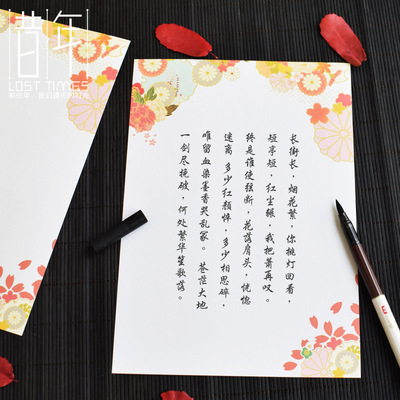 昔年
LOST TIMES
长街长，烟花繁，你挑灯回看，
短亭短，红尘辗，我把萧再叹。
终是谁使弦断，花落肩头，恍惚
迷离 多少红颜悴，多少相思碎，
唯留血染墨香哭乱冢。 苍茫大地
一剑尽挽破，何处繁华笙歌落。